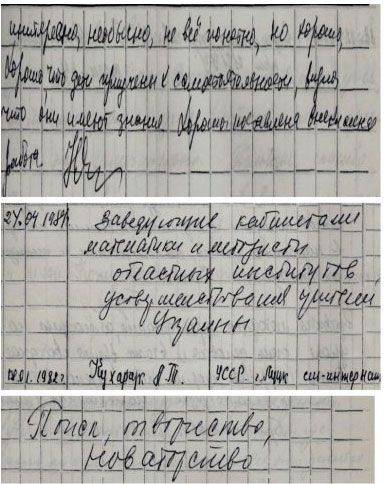 интересно, необычно, не всё понятно, но хорошо,
Хорошо, что дети приучены к самостоятельности, видно,
что они имеют знания. Хорошо поставлена внеклассная
работа
24.04 1981г. Заведующие кабинетами
математики и методисты
областных институтов
усовершенствования учителей
Украины
1982г. Кухарук УССР. г. Луцк сш-интернат
Поиск, творчество,
новаторство